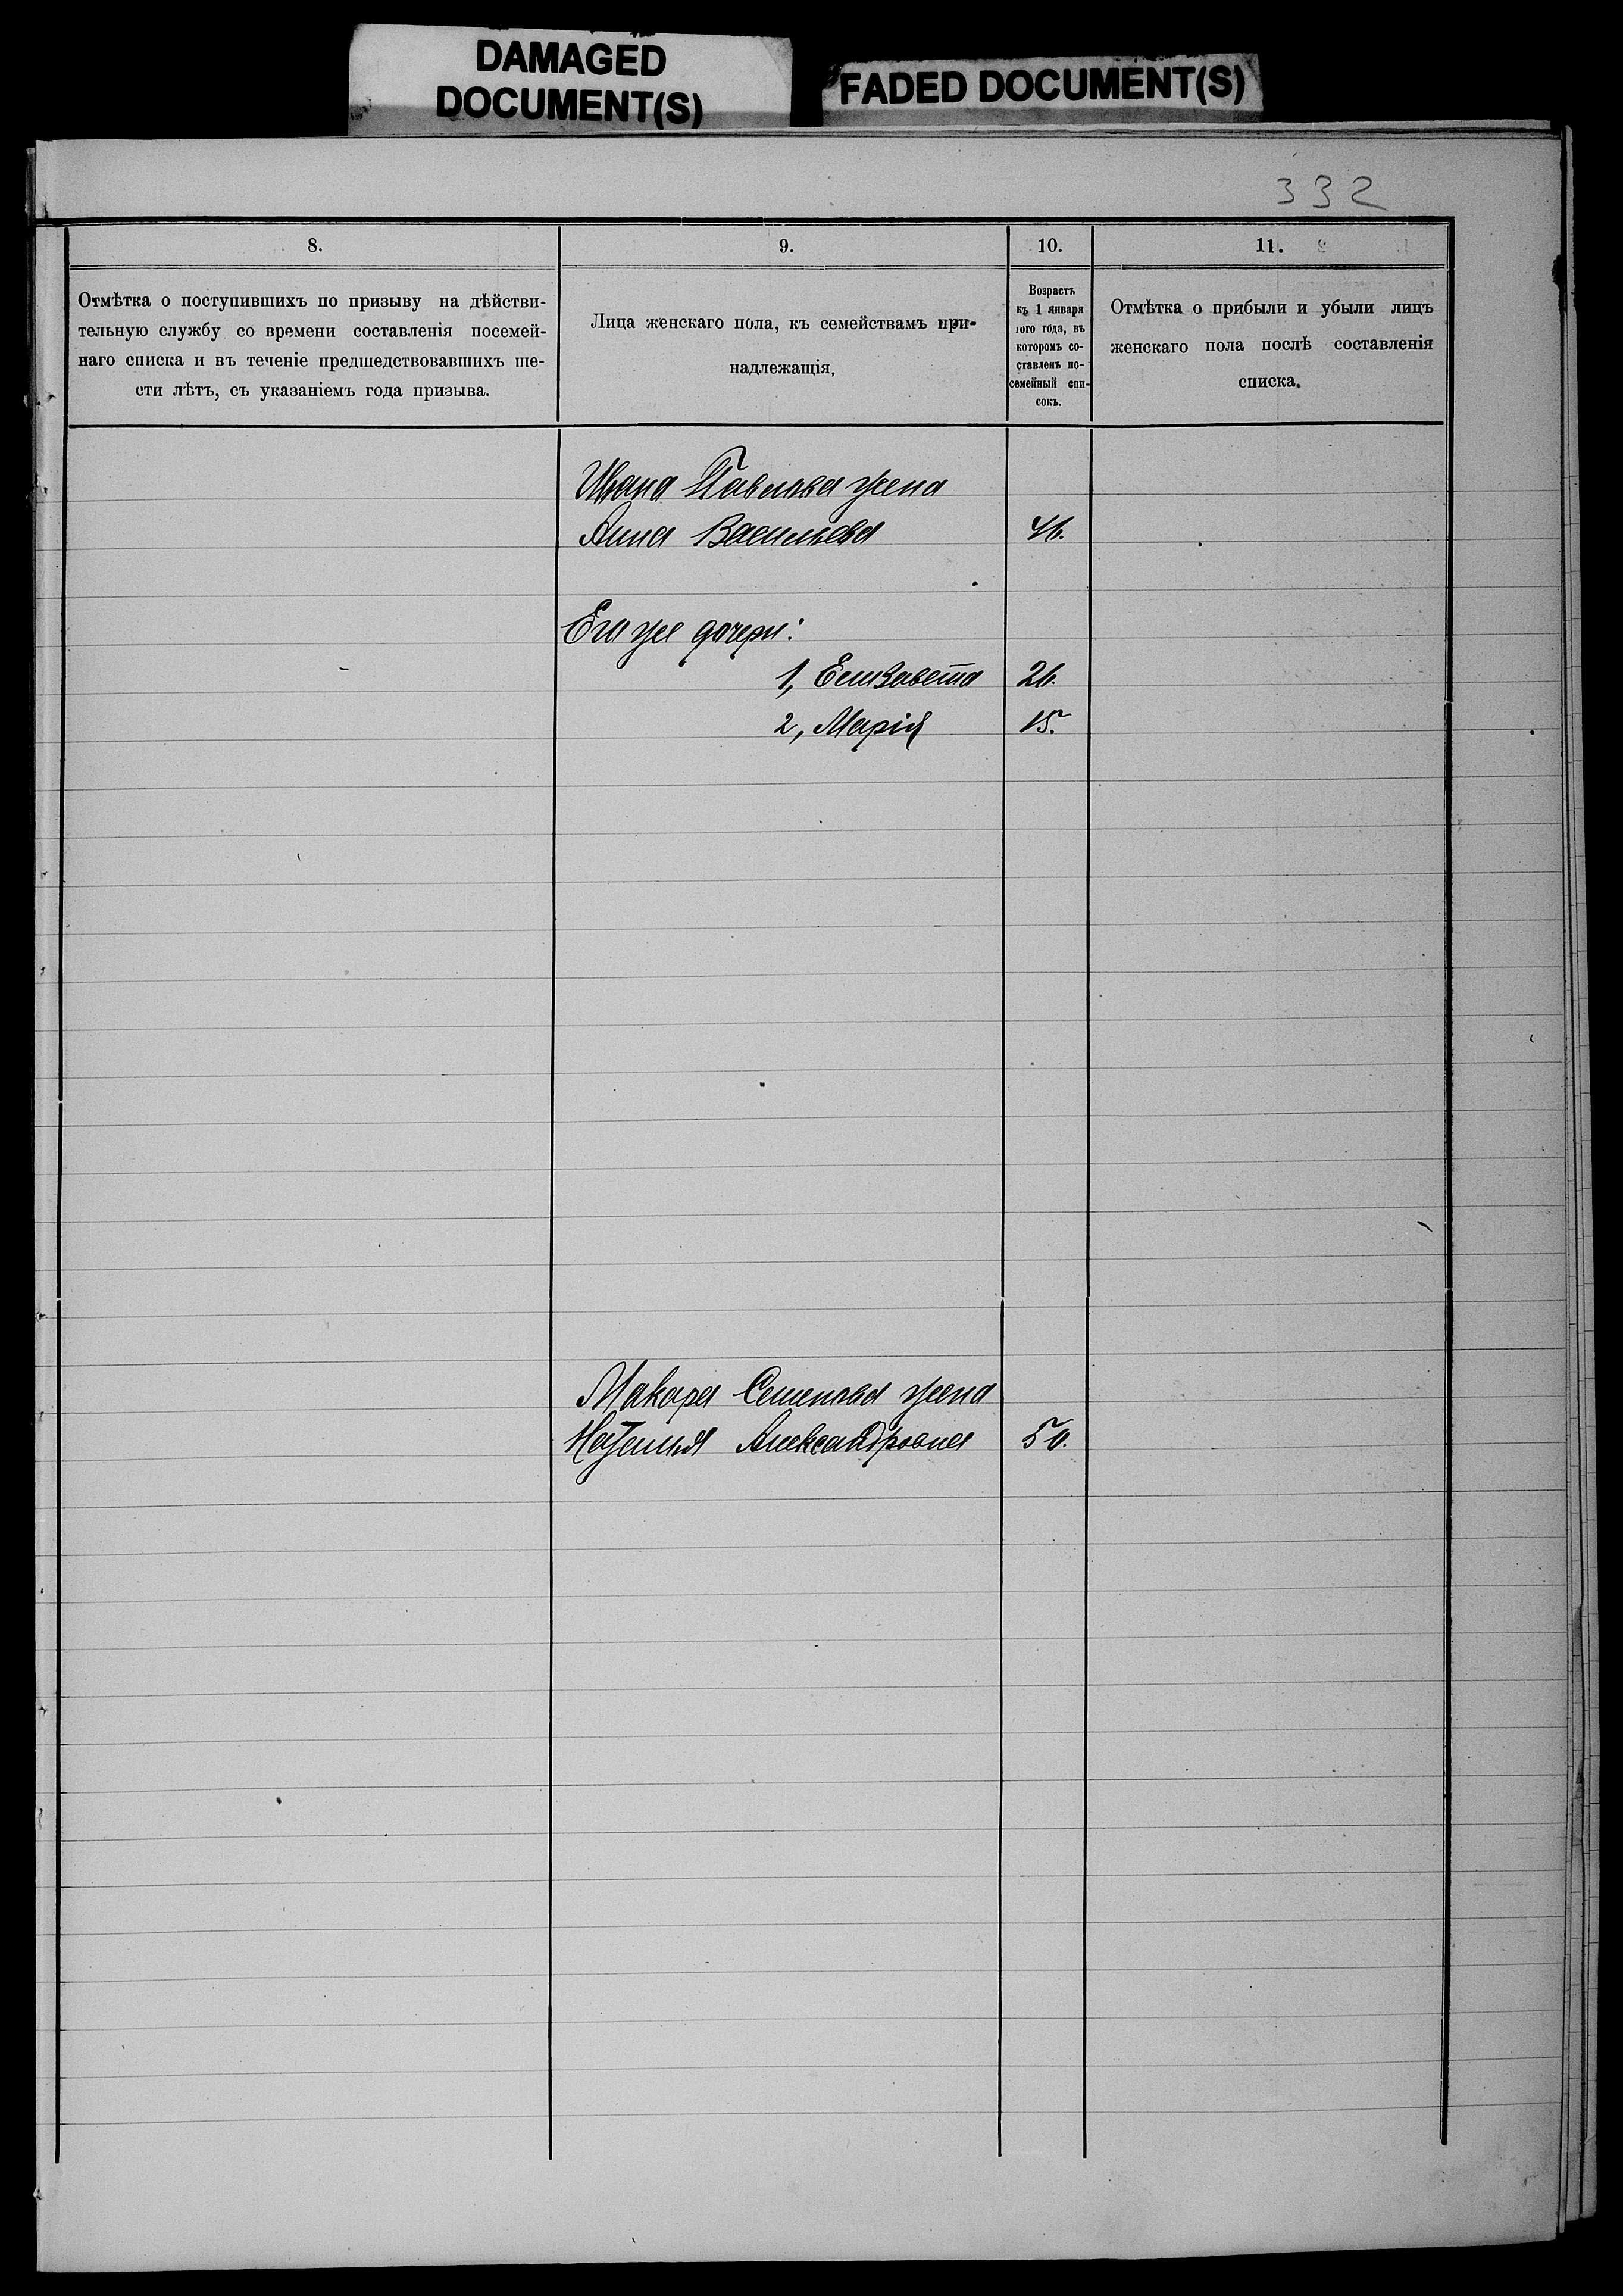 DAMAGED
DOCUMENT(S)
FADED DOCUMENT(S)
332
8.
9.
10.
11.
Отмѣтка о поступившихъ по призыву на дѣйстви-
тельную службу со времени составленія посемей-
наго списка и въ теченіе предшедствовавшихъ ше-
сти лѣтъ, съ указаніемъ года призыва.
Лица женскаго пола, къ семействамъ при-
надлежащія,
Возрастъ
къ 1 января
того года, въ
которомъ со-
ставленъ по-
семейный спи-
сокъ.
Отмѣтка о прибыли и убыли лицъ
женскаго пола послѣ составленія
списка.
Ивана Павлова жена
Анна Васильева 46.
Его же дочери:
1, Елизавета 26.
2, Марія 15.
Макара Семенова жена
Наталья Александровна 50.